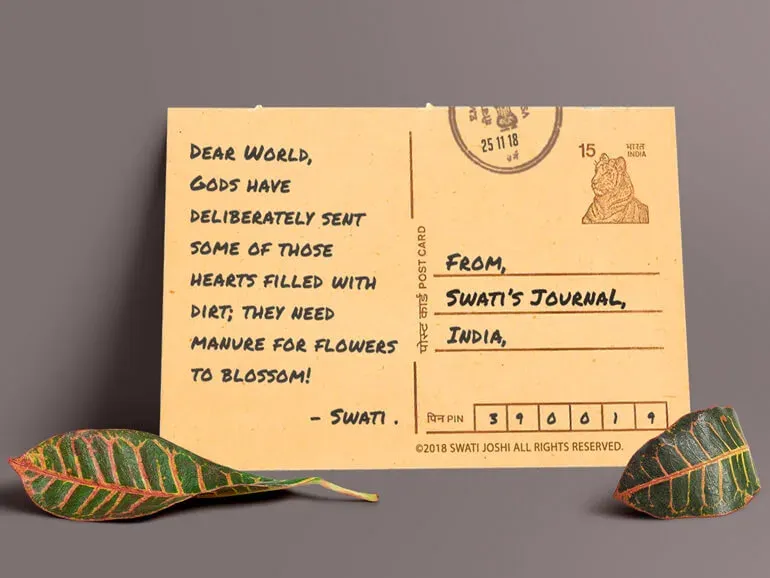 DEAR WORLD,
GODS HAVE
DELIBERATELY SENT
SOME OF THOSE
HEARTS FILLED WITH
DIRT; THEY NEED
MANURE FOR FLOWERS
TO BLOSSOM!
- SWATI .
पोस्ट कार्ड POST CARD
25 11 18
15 भारत
INDIA
FROM,
SWATI'S JOURNAL,
INDIA,
पिन PIN 3 9 0 0 1 9
©2018 SWATI JOSHI ALL RIGHTS RESERVED.